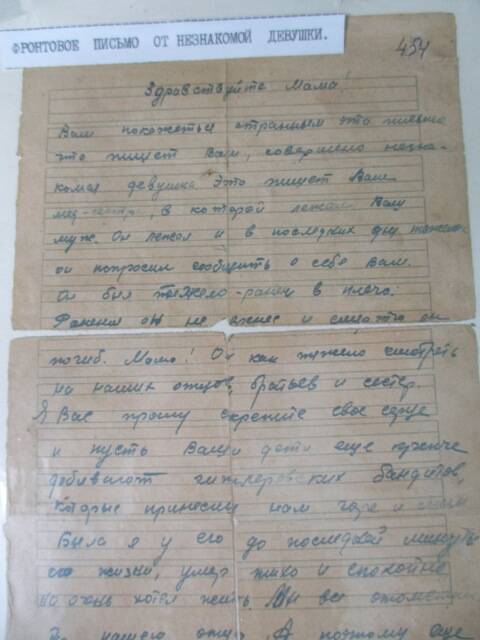 ФРОНТОВОЕ ПИСЬМО ОТ НЕЗНАКОМОЙ ДЕВУШКИ.
454
Здравствуйте Мама!
Вам покажеться странным это письмо
что пишет Вам, совершено незна-
комая девушка Это пишет Вам
мед-сестра, в которой лежал Ваш
муж. Он лежал и в последних
он попросил сообщить о себе Вам.
Он был тяжело-ранен в плечо.
он не вынес и
погиб. Мама! Ох как тяжело смотреть
на наших отцов, братьев и сестер.
Я Вас прошу скрепите свое серце
и пусть Ваши дети еще
добивают гитлеровских бандитов,
которые принесли нам горе и
Была я у его до последней минуты
его жизни, умер тихо и спокойно
но очень хотел жить. Мы все отомстим
За нашего отца А поэтому еще